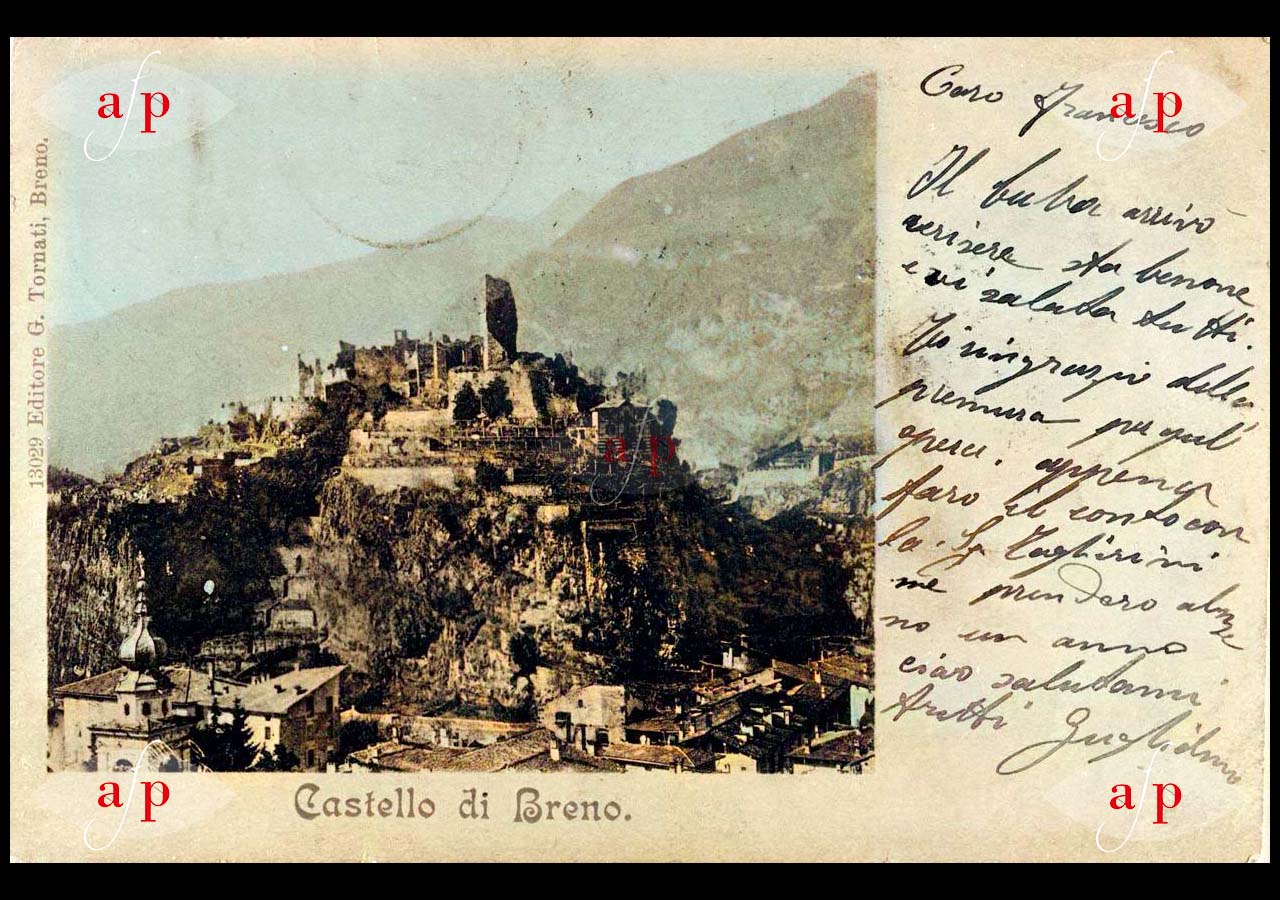 afp
afp
13029 Editore G. Tornati, Breno.
Caro Francesco
Il buba arrivò
sta benone
e vi saluta tutti.
Vi ringrazio della
premura per quel
opera. appena
faro il conto con
la. Sg
me prendero
no un anno
ciao salutami
tutti Guglielmo
afp
Castello di Breno.
afp
afp